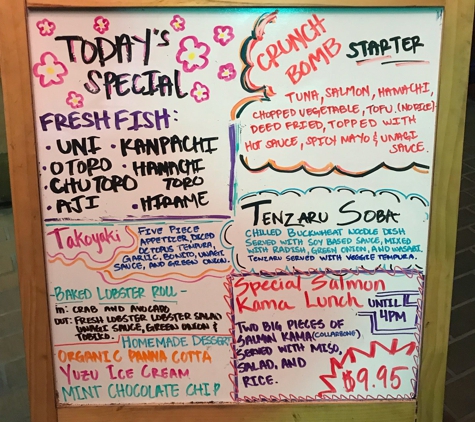 TODAY's
SPECIAL
FRESH FISH:
• UNI
• OTORO
• CHUTORO
• AJI
• KANPACHI
• HAMACHI
TORO
• HIRAME
CRUNCH
BOMB STARTER
TUNA, SALMON, HAMACHI,
CHOPPED VEGETABLE, TOFU, (NO RICE)
DEED FRIED, TOPPED WITH
HOT SAUCE, SPICY MAYO & UNAGI
SAUCE.
Takoyaki
FIVE PIECE
APPETIZER, DICED
OCTOPUS TEMPURA,
GARLIC, BONITO, UNAGI
SAUCE, AND GREEN ONION.
TENZARU SOBA
CHILLED BUCKWHEAT NOODLE DISH
SERVED WITH SOY BASED SAUCE, MIXED
WITH RADISH, GREEN ONION, AND WASABI.
TENZARU SERVED WITH VEGGIE TEMPURA.
- BAKED LOBSTER ROLL -
IN: CRAB AND AVOCADO
OUT: FRESH LOBSTER LOBSTER SALAD
UNAGI SAUCE, GREEN ONION &
TOBIKO.
HOMEMADE DESSERT
ORGANIC PANNA COTTA
YUZU ICE CREAM
MINT CHOCOLATE CHIP
Special Salmon
Kama Lunch UNTIL
4PM
TWO BIG PIECES OF
SALMON KAMA (COLLARBONE)
SERVED WITH MISO,
SALAD, AND
RICE.
$9.95